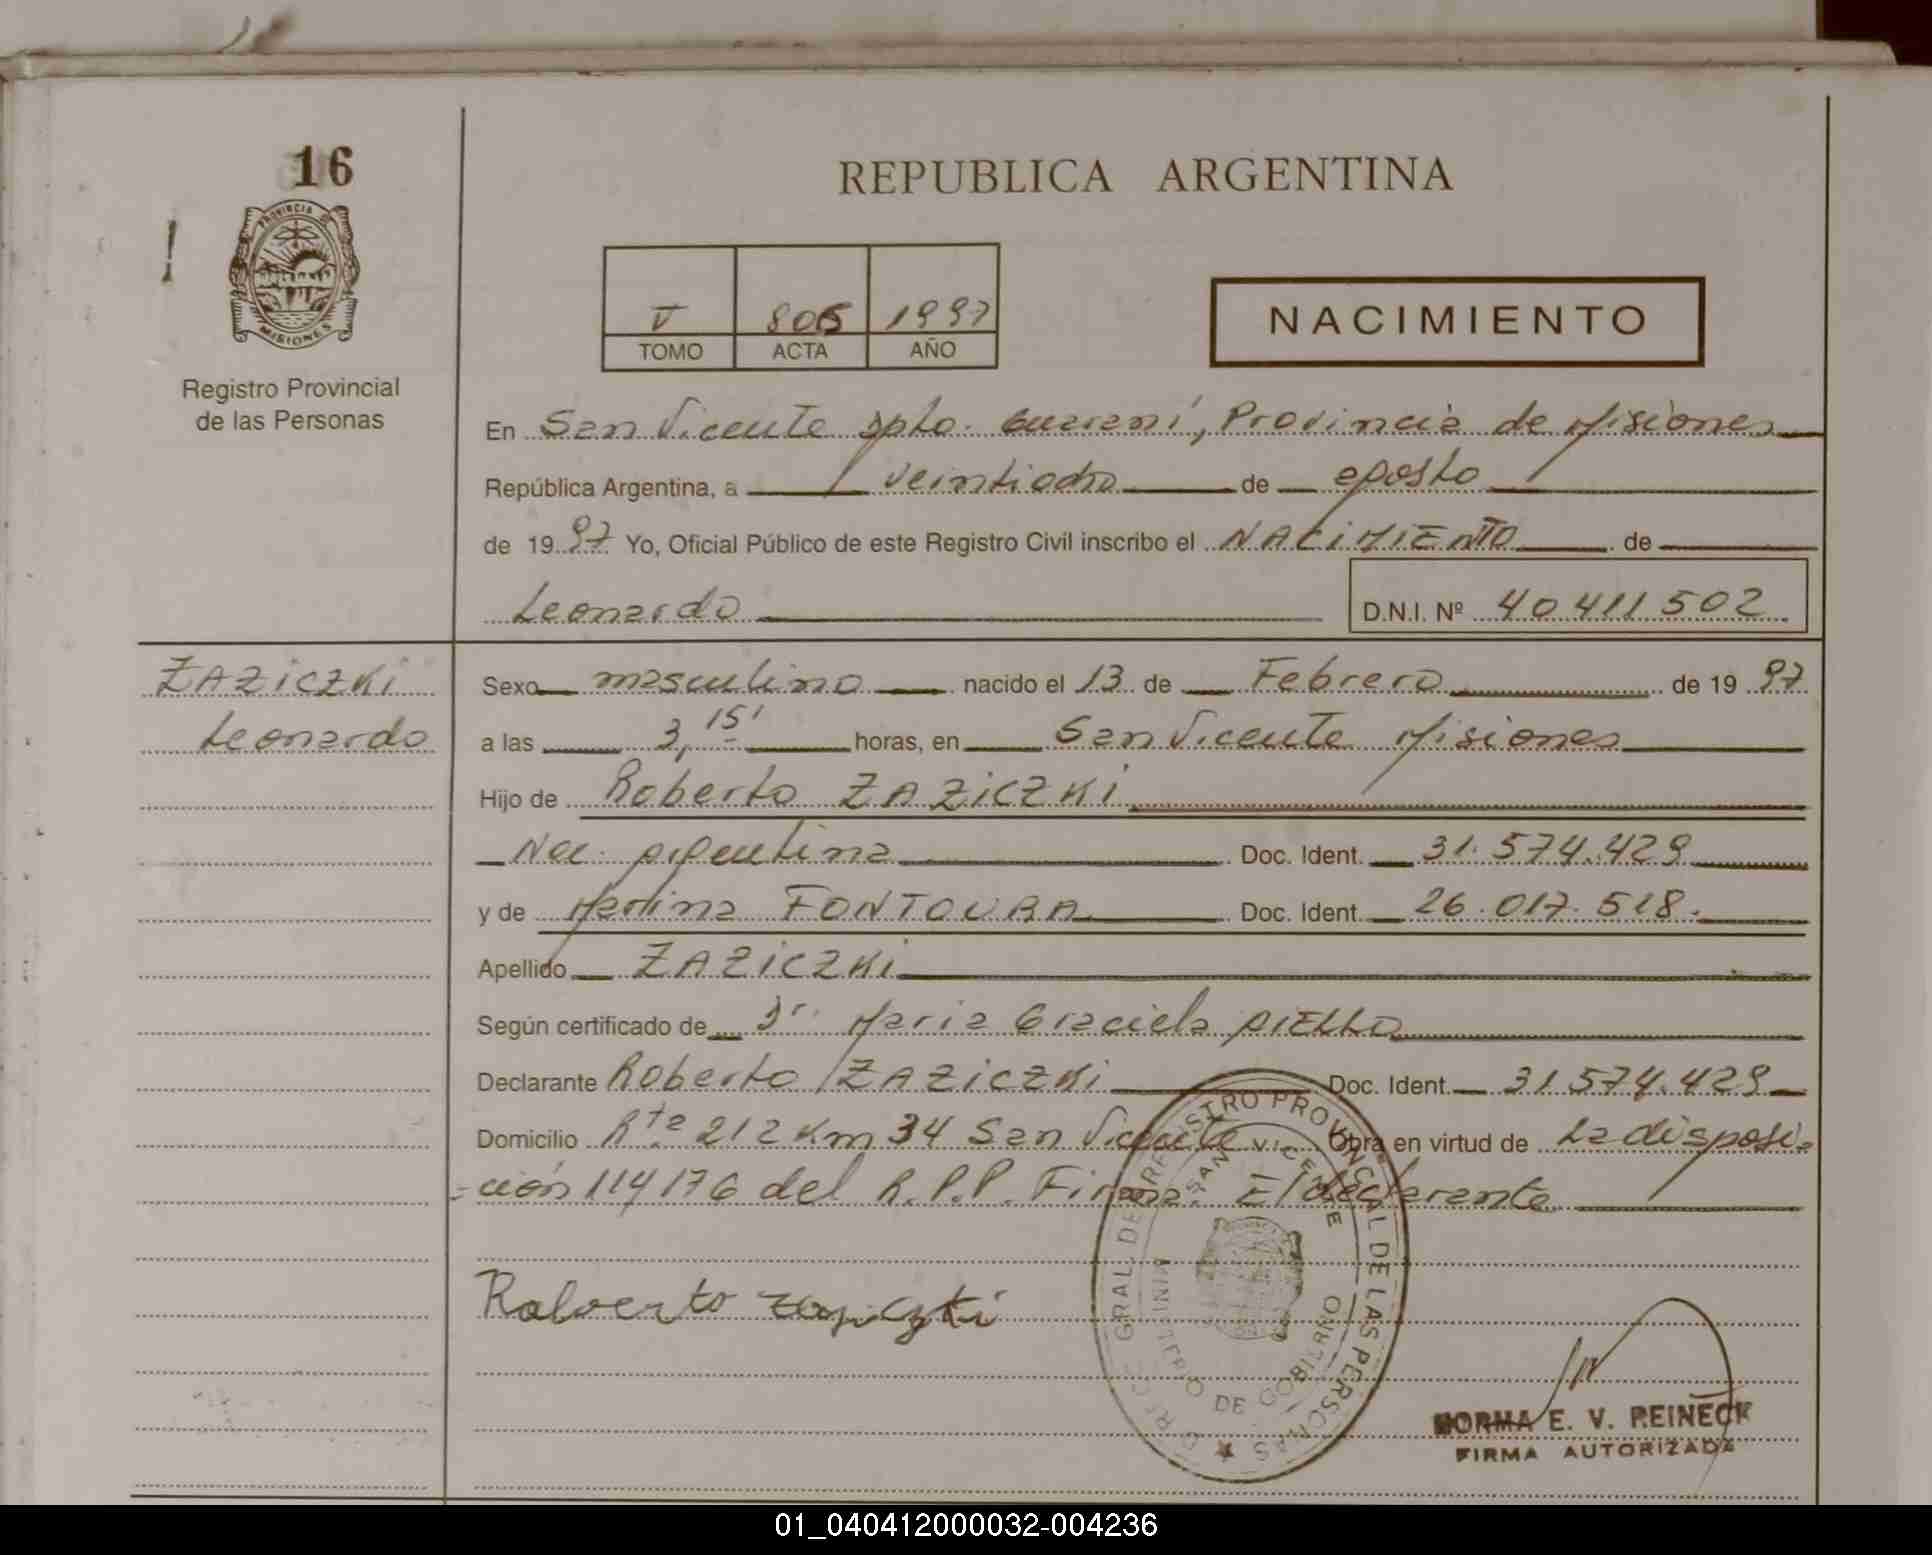 16
REPUBLICA ARGENTINA
PROVINCIA DE
MISIONES
Registro Provincial
de las Personas
V 806 1997
TOMO ACTA AÑO
NACIMIENTO
En San Vicente Dpto. Guaraní, Provincia de Misiones
República Argentina, a veintiocho de agosto
de 1997 Yo, Oficial Público de este Registro Civil inscribo el NACIMIENTO de
Leonardo D.N.I. Nº 40411502
ZAZiCZKi
Leonardo
Sexo masculino nacido el 13 de Febrero de 1997
a las 3,15' horas, en San Vicente Misiones
Hijo de Roberto ZAZiCZKi
Nac. Argentina Doc. Ident. 31.574.429
y de Marlina FONTOURA Doc. Ident. 26.017.518.
Apellido ZAZiCZKi
Según certificado de Dr. Maria Graciela AiELLO
Declarante Roberto ZAZiCZKi Doc. Ident. 31.574.429
Domicilio Rta 212 Km 34 San Vicente Obra en virtud de La disposi=
=ción 114/76 del R.P.P. Firma: El declarante
Roberto Zaziczki
GRAL. DE REGISTRO PROVINCIAL DE LAS PERSONAS
SAN VICENTE
DE GOBIERNO
NORMA E. V. REINECK
FIRMA AUTORIZADA
01_040412000032-004236